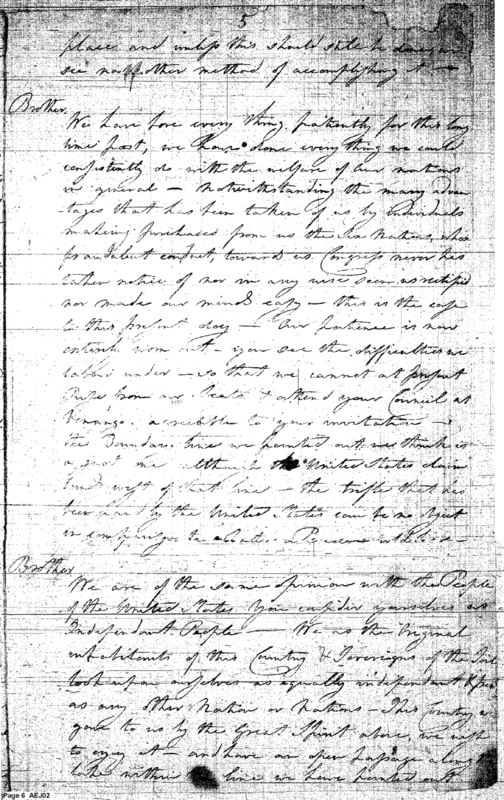 5
place and unless this should still be done, we
see no other method of accomplishing it —
Brother
We have bore every thing patiently for this long
time past, we have done every thing we could
consistently do with the welfare of our nations
in general — Notwithstanding the many advan
-tages that has been taken of us by individuals
making purchases from us the Six Nations, whos
fraudulent conduct, towards us Congress never has
taken notice of nor in any wise seen us rectified
nor made our minds easy — this is the case
to this present day — Our patience is now
entirely worn out — you see the difficulties we
labour under — so that we cannot at present
Rise from our Seats & attend your Council at
Venango agreeable to your invitation —
the Boundary line we pointed out we think is
a just one although the United States claim
lands west of that line — the trifle that has
been paid by the United States can be no object
in comparison to what a Peace
Brother
We are of the same opinion with the People
of the United States You consider yourselves as
Independant People — We as the Original
inhabitants of this Country & Sovereigns of the Soil
look upon ourselves as equally independant & free
as any other Nation or Nations — This Country was
gave to us by the Great Spirit above, we wish
to enjoy it — and have an open passage along the
lake within line we have pointed out
Page 6 AEJ02